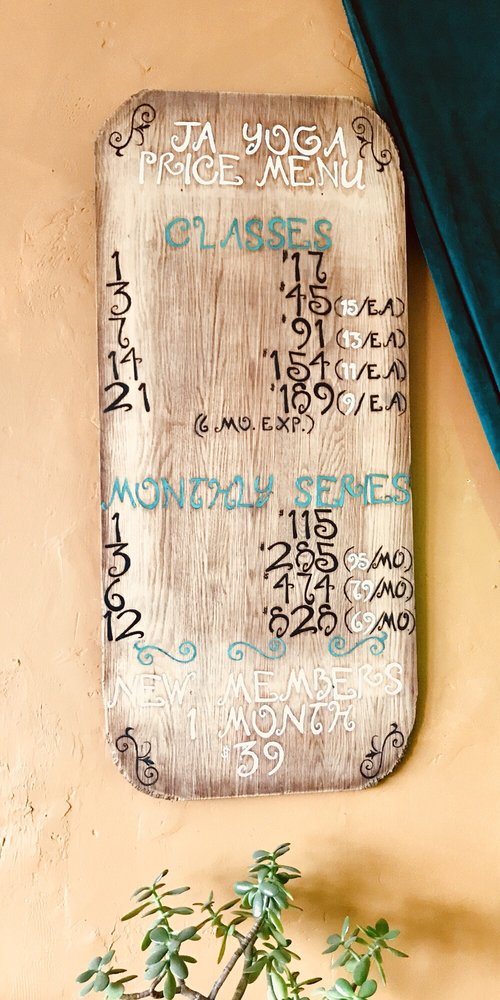 JA YOGA
PRICE MENU
CLASSES
1 $17
3 $45 (15/EA)
7 $91 (13/EA)
14 $154 (11/EA)
21 $189 (9/EA)
(6 MO. EXP.)
MONTHLY SERIES
1 $115
3 $285 (95/MO)
6 $474 (79/MO)
12 $828 (69/MO)
NEW MEMBERS
1 MONTH
$39